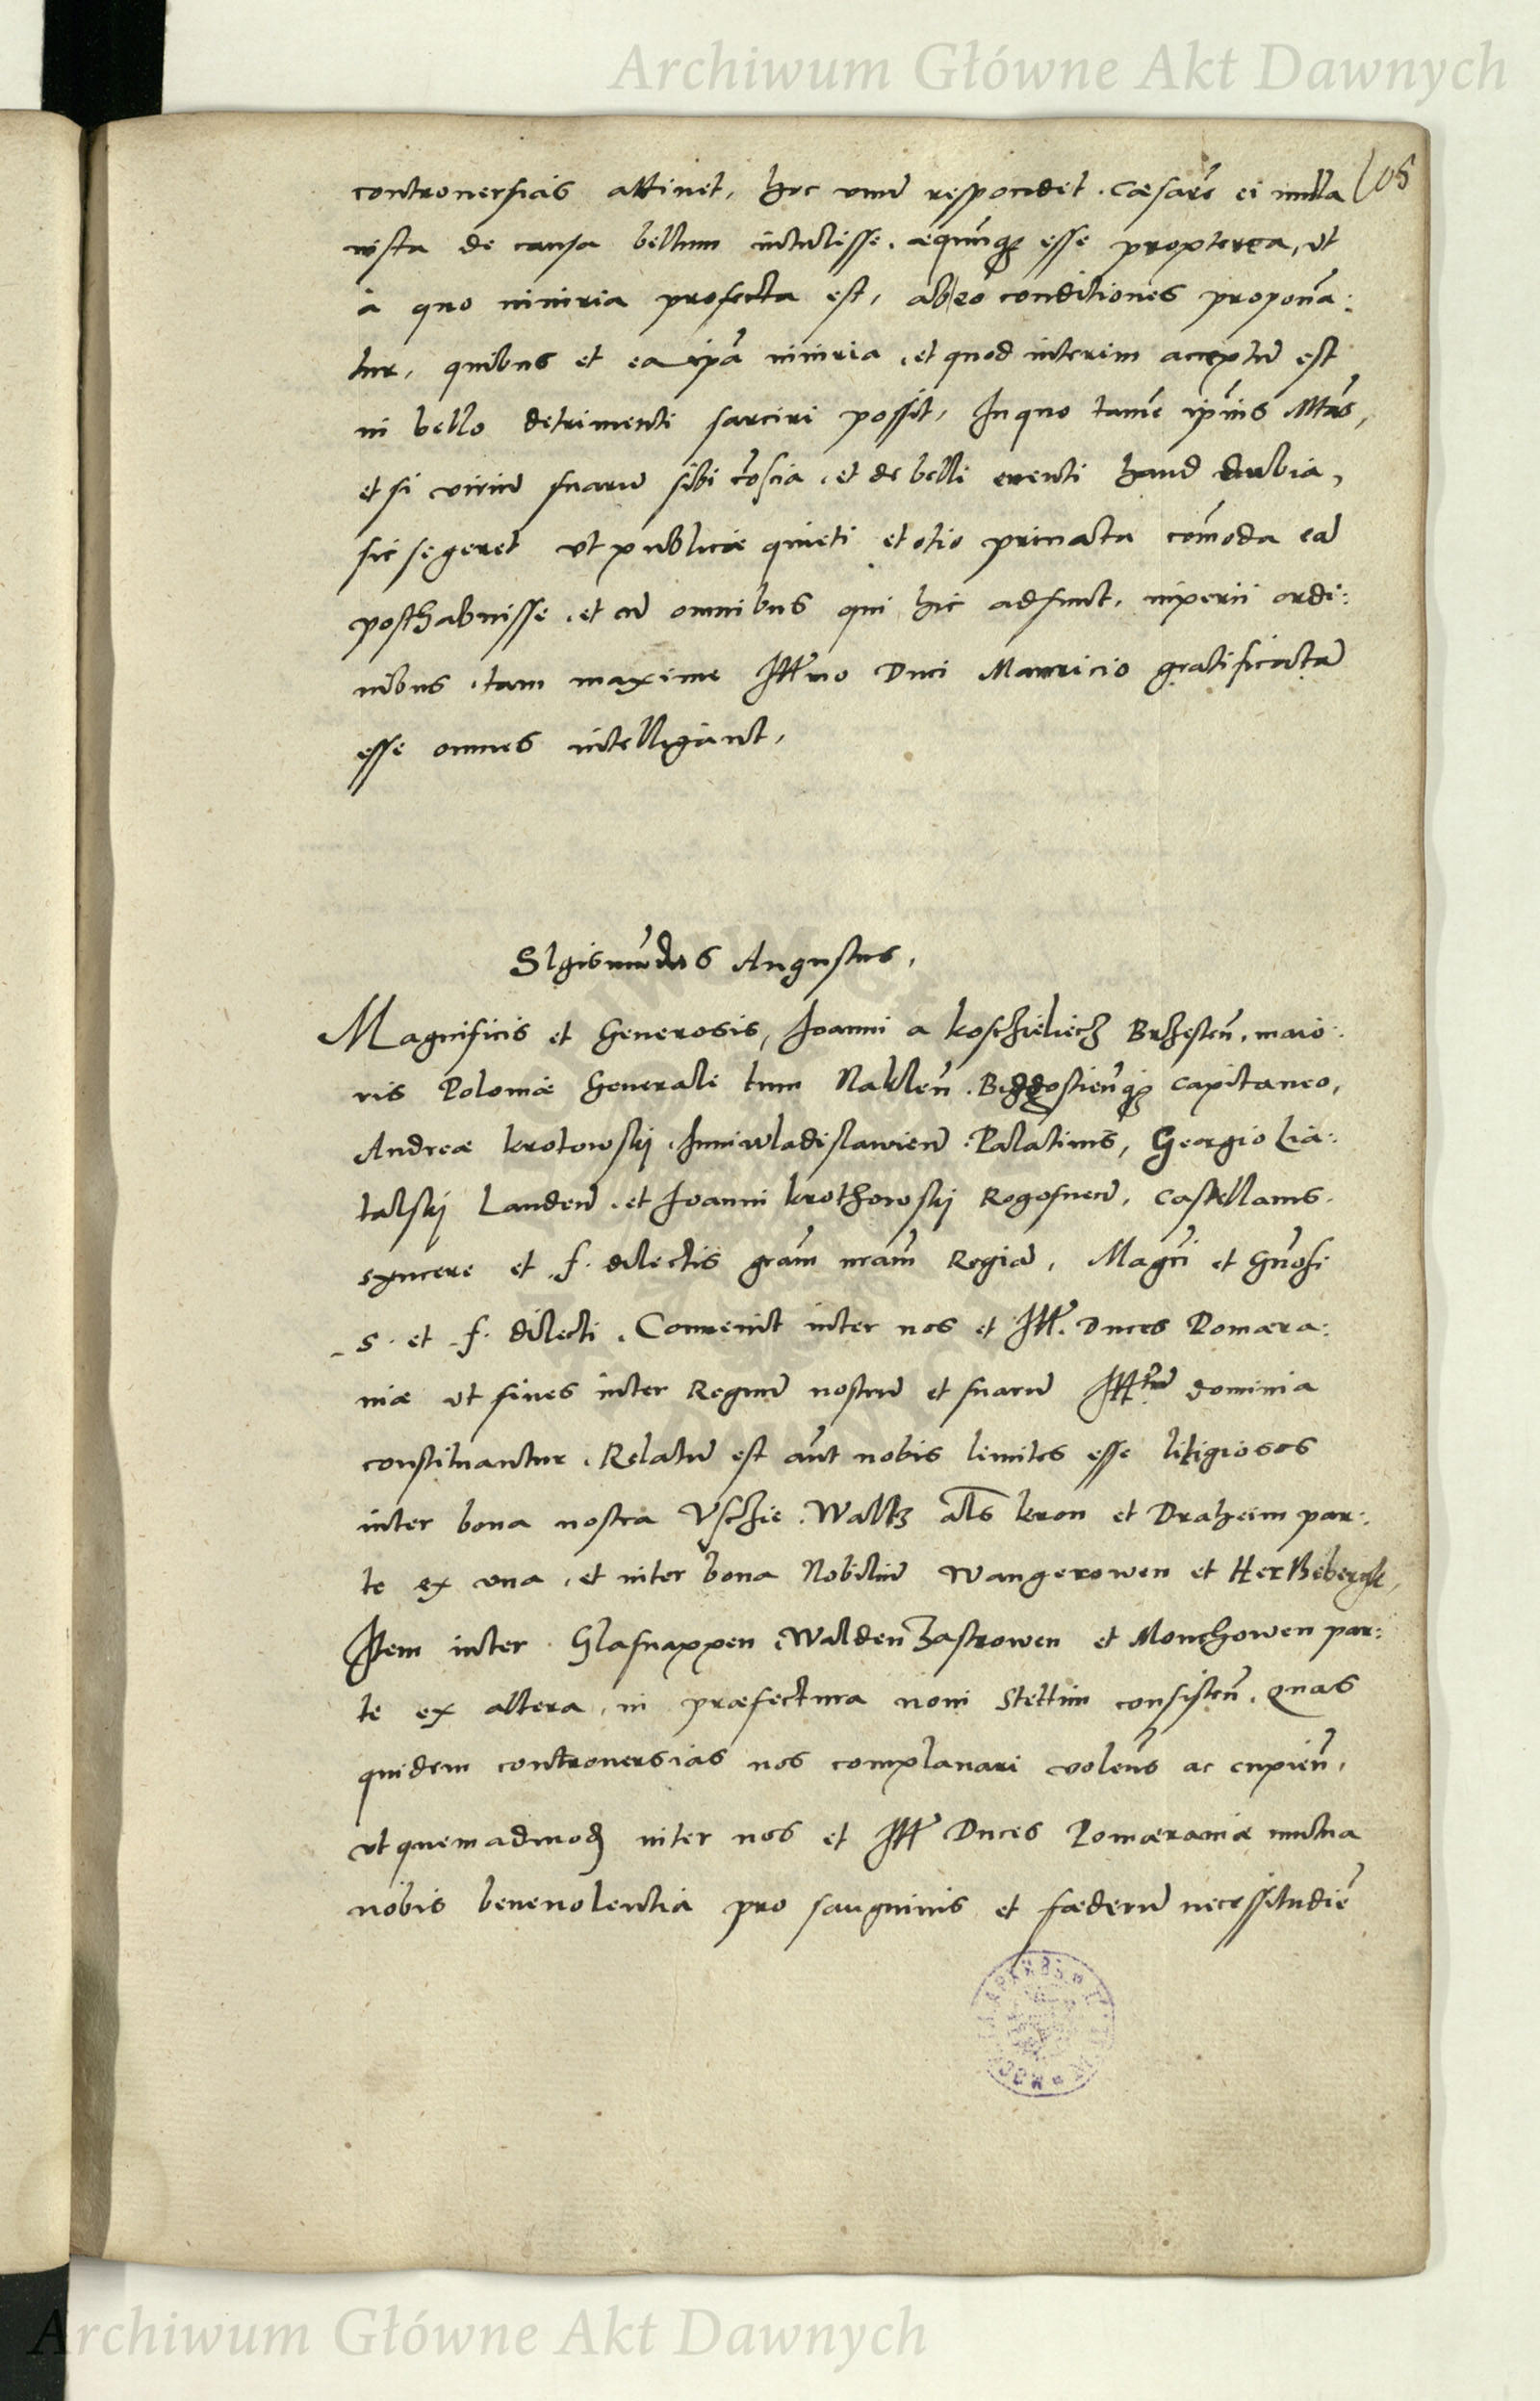 Archiwum Główne Akt Dawnych
105
controuersias attinet, hoc unū respondet. Cæsarē ei nulla
iusta de causa bellum intulisse. æquūq; esse propterea, ut
à quo iniuria profecta est, ab eo conditiones proponā:
tur, quibus et ea ipā iniuria, et quod interim acceptū est
in bello detrimenti sarciri possit, In quo tamē ipīus Mtās,
et si viriū suarū sibi cōscia, et de belli euenti haud dubia,
sic se geret ut publicæ quieti et otio priuata cōmoda eā
posthabuisse, et cū omnibus qui hic adsunt, imperii ordi:
nibus, tam maxime Illmo Duci Mauricio gratificatā
esse omnes intelligant,
SIgismūdus Augustus,
Magnificis et Generosis, Joanni a Koschieliecz Brzestēn, maio:
ris Poloniæ Generali tum Naklēn. Bidgostiēnq; Capitaneo,
Andreæ Krotowskj Juniwladislawien̄. Palatinis, Georgio Lia:
talskj Landen̄. et Joanni Krothowskj Rogosnen̄, Castellanis.
syncere et f. dilectis grām nrām Regiā, Magcī et Gn̄osi
s. et f. dilecti. Conuenit inter nos et Ill. Duces Pomæra:
niæ ut fines inter Regnū nostrū et suarū Illtrū dominia
constituantur. Relatū est aūt nobis limites esse litigiosos
inter bona nostra Vschie. Waltz als Kron et Draheim par:
te ex una, et inter bona Nobiliū Wangerowen et
Item inter Glasnappen, Walden Zastrowen et Monchowen par:
te ex altera, in præfectura noui Stettim consistēn. Quas
quidem controuersias nos complanari volēns ac cupiēn,
ut quemadmodȝ inter nos et Ill Duces Pomæraniæ mutua
nobis beneuolentia pro sanguinis et fœderū necessitudiē
Archiwum Główne Akt Dawnych